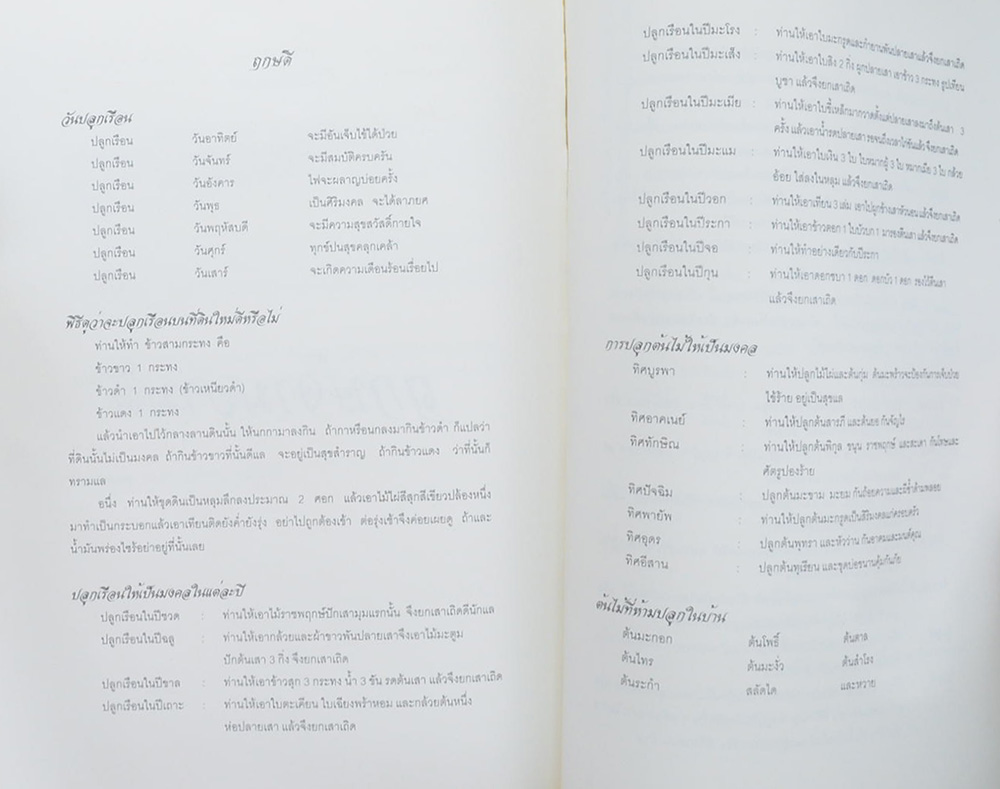 ฤกษดี
วันปลูกเรือน
ปลูกเรือน วันอาทิตย์ จะมีอันเจ็บไข้ได้ป่วย
ปลูกเรือน วันจันทร์ จะมีสมบัติครบครัน
ปลูกเรือน วันอังคาร ไฟจะผลาญบ่อยครั้ง
ปลูกเรือน วันพุธ เป็นศิริมงคล จะได้ลาภยศ
ปลูกเรือน วันพฤหัสบดี จะมีความสุขสวัสดิ์กายใจ
ปลูกเรือน วันศุกร์ ทุกข์ปนสุขคลุกเคล้า
ปลูกเรือน วันเสาร์ จะเกิดความเดือนร้อนเรื่อยไป
พิธีดูว่าจะปลูกเรือนบนที่ดินใหม่ดีหรือไม่
ท่านให้ทำ ข้าวสามกระทง คือ
ข้าวขาว 1 กระทง
ข้าวดำ 1 กระทง (ข้าวเหนียวดำ)
ข้าวแดง 1 กระทง
แล้วนำเอาไปไว้กลางลานดินนั้น ให้นกกามาลงกิน ถ้ากาหรือนกลงมากินข้าวดำ ก็แปลว่า
ที่ดินนั้นไม่เป็นมงคล ถ้ากินข้าวขาวที่นั้นดีแล จะอยู่เป็นสุขสำราญ ถ้ากินข้าวแดง ว่าที่นั้นก็
ทรามแล
อนึ่ง ท่านให้ขุดดินเป็นหลุมลึกลงประมาณ 2 ศอก แล้วเอาไม้ไผ่สีสุกสีเขียวปล้องหนึ่ง
มาทำเป็นกระบอกแล้วเอาเทียนติดยังค่ำยังรุ่ง อย่าไปถูกต้องเข้า ต่อรุ่งเช้าจึงค่อยเผยดู ถ้าและ
น้ำมันพร่องไซร้อย่าอยู่ที่นั้นเลย
ปลูกเรือนให้เป็นมงคลในแต่ละปี
ปลูกเรือนในปีชวด : ท่านให้เอาไม้ราชพฤกษ์ปักเสามุมแรกนั้น จึงยกเสาเถิดดีนักแล
ปลูกเรือนในปีฉลู : ท่านให้เอากล้วยและผ้าขาวพันปลายเสาจึงเอาไม้มะตูม
ปักต้นเสา 3 กิ่ง จึงยกเสาเถิด
ปลูกเรือนในปีขาล : ท่านให้เอาข้าวสุก 3 กระทง น้ำ 3 ขัน รดต้นเสา แล้วจึงยกเสาเถิด
ปลูกเรือนในปีเถาะ : ท่านให้เอาใบตะเคียน ใบเฉียงพร้าหอม และกล้วยต้นหนึ่ง
ห่อปลายเสา แล้วจึงยกเสาเถิด
ปลูกเรือนในปีมะโรง : ท่านให้เอาใบมะกรูดและกำยานพันปลายเสาแล้วจึงยกเสาเถิด
ปลูกเรือนในปีมะเส็ง : ท่านให้เอาใบสิง 2 กิ่ง ผูกปลายเสา เอาข้าว 3 กระทง ธูปเทียน
บูชา แล้วจึงยกเสาเถิด
ปลูกเรือนในปีมะเมีย : ท่านให้เอาใบขี้เหล็กมากวาดตั้งแต่ปลายเสาลงมาถึงต้นเสา 3
ครั้ง แล้วเอาน้ำรดปลายเสา รอจนถึงเวลาไก่ขันแล้วจึงยกเสาเถิด
ปลูกเรือนในปีมะแม : ท่านให้เอาใบเงิน 3 ใบ ใบหมากผู้ 3 ใบ หมากเมีย 3 ใบ กล้วย
อ้อย ใส่ลงในหลุม แล้วจึงยกเสาเถิด
ปลูกเรือนในปีวอก : ท่านให้เอาเทียน 3 เล่ม เอาไปผูกข้างเสาหัวนอน แล้วจึงยกเสาเถิด
ปลูกเรือนในปีระกา : ท่านให้เอาข้าวตอก 1 ใบบัวบก 1 มารองตีนเสา แล้วจึงยกเสาเถิด
ปลูกเรือนในปีจอ : ท่านให้ทำอย่างเดียวกับปีระกา
ปลูกเรือนในปีกุน : ท่านให้เอาดอกชบา 1 ดอก ดอกบัว 1 ดอก รองไว้ตีนเสา
แล้วจึงยกเสาเถิด
การปลูกต้นไม้ให้เป็นมงคล
ทิศบูรพา : ท่านให้ปลูกไม้ไผ่และต้นกุ่ม ต้นมะพร้าวจะป้องกันการเจ็บป่วย
ใช้ร้าย อยู่เป็นสุขแล
ทิศอาคเนย์ : ท่านให้ปลูกต้นสารภี และต้นยอ กันจัญไร
ทิศทักษิณ : ท่านให้ปลูกต้นพิกุล ขนุน ราชพฤกษ์ และสะเดา กันโทษและ
ศัตรูปองร้าย
ทิศปัจฉิม : ปลูกต้นมะขาม มะยม กันถ้อยความและผีซ้ำด้ำพลอย
ทิศพายัพ : ท่านให้ปลูกต้นมะกรูดเป็นสิริมงคลแก่ครอบครัว
ทิศอุดร : ปลูกต้นพุทรา และหัวว่าน กันอาคมและมนต์คุณ
ทิศอีสาน : ปลูกต้นทุเรียน และขุดบ่อขนานคุ้มกันภัย
ต้นไม้ที่ห้ามปลูกในบ้าน
ต้นมะกอก ต้นโพธิ์ ต้นตาล
ต้นไทร ต้นมะงั่ว ต้นสำโรง
ต้นระกำ สลัดได และหวาย